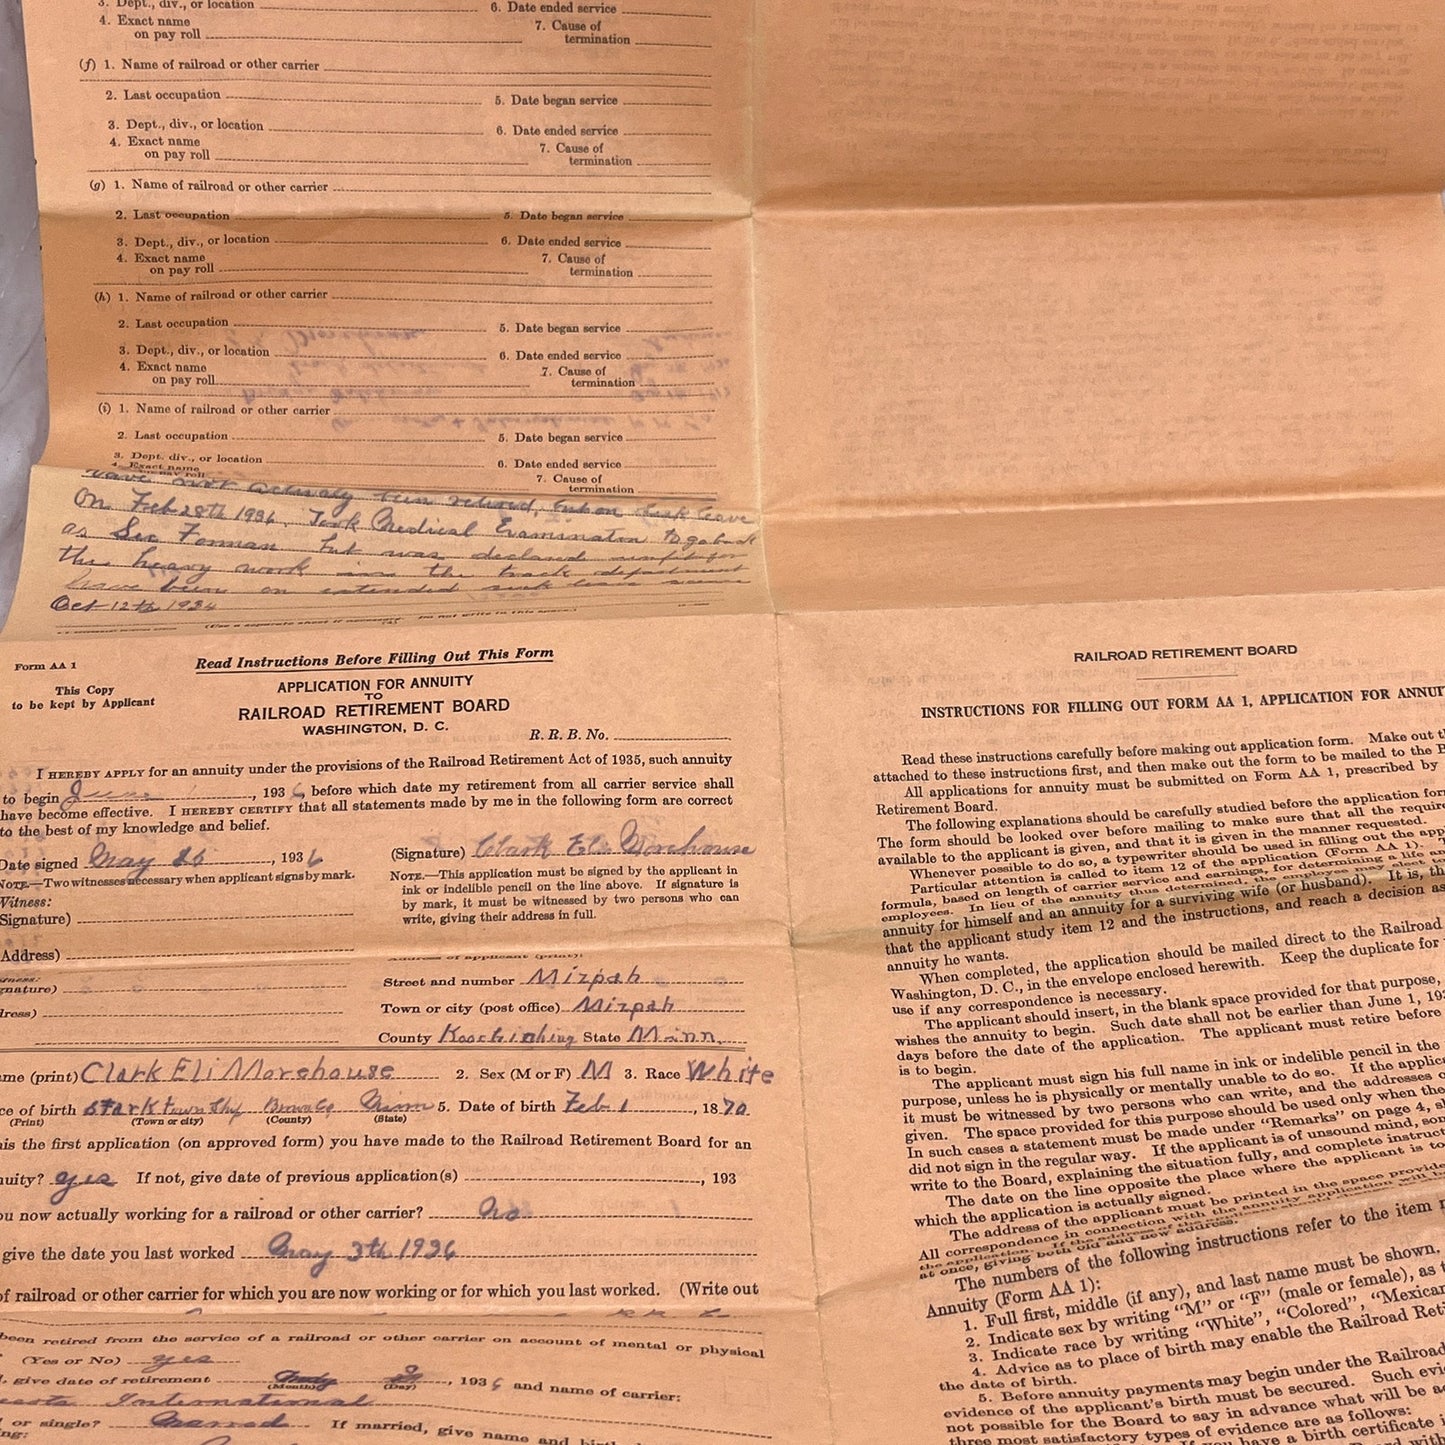 3. Dept., div., or location
6. Date ended service
4. Exact name
on pay roll
7. Cause of
termination
(f) 1. Name of railroad or other carrier
2. Last occupation
5. Date began service
3. Dept., div., or location
6. Date ended service
4. Exact name
on pay roll
7. Cause of
termination
(g) 1. Name of railroad or other carrier
2. Last occupation
5. Date began service
3. Dept., div., or location
6. Date ended service
4. Exact name
on pay roll
7. Cause of
termination
(h) 1. Name of railroad or other carrier
2. Last occupation
5. Date began service
3. Dept., div., or location
6. Date ended service
4. Exact name
on pay roll
7. Cause of
termination
(i) 1. Name of railroad or other carrier
2. Last occupation
5. Date began service
3. Dept., div., or location
6. Date ended service
4. Exact name
on pay roll
7. Cause of
termination
have not actualy been retired, but on sick leave
On Feb 28th 1936. Took Medical Examination to go back
as Sec Forman but was declared unfit for
the heavy work in the track department
have been on extended sick leave
Oct 12th 1934
(Use a separate sheet if necessary.) Do not write in this space.)
Form AA 1
Read Instructions Before Filling Out This Form
This Copy
to be kept by Applicant
APPLICATION FOR ANNUITY
TO
RAILROAD RETIREMENT BOARD
WASHINGTON, D. C.
R. R. B. No.
I HEREBY APPLY for an annuity under the provisions of the Railroad Retirement Act of 1935, such annuity
to begin June, 1936, before which date my retirement from all carrier service shall
have become effective. I HEREBY CERTIFY that all statements made by me in the following form are correct
to the best of my knowledge and belief.
Date signed May 26, 1936
(Signature) Clark Eli Morehouse
NOTE.—Two witnesses necessary when applicant signs by mark.
Witness:
(Signature)
(Address)
NOTE.—This application must be signed by the applicant in
ink or indelible pencil on the line above. If signature is
by mark, it must be witnessed by two persons who can
write, giving their address in full.
Address of applicant (print):
Street and number Mizpah
Town or city (post office) Mizpah
County Koochiching State Minn.
ame (print) Clark Eli Morehouse 2. Sex (M or F) M 3. Race White
ce of birth Stark Township Brown Co Minn 5. Date of birth Feb 1, 1870
(Print) (Town or city) (County) (State)
his the first application (on approved form) you have made to the Railroad Retirement Board for an
nuity? yes If not, give date of previous application(s), 193
ou now actually working for a railroad or other carrier? No
give the date you last worked May 3th 1936
of railroad or other carrier for which you are now working or for which you last worked. (Write out
been retired from the service of a railroad or other carrier on account of mental or physical
(Yes or No) yes
, give date of retirement
(Month) (Day), 1936 and name of carrier:
esota International
d or single? Married If married, give name and
RAILROAD RETIREMENT BOARD
INSTRUCTIONS FOR FILLING OUT FORM AA 1, APPLICATION FOR ANNUI
Read these instructions carefully before making out application form. Make out th
attached to these instructions first, and then make out the form to be mailed to the B
All applications for annuity must be submitted on Form AA 1, prescribed by
Retirement Board.
The following explanations should be carefully studied before the application for
The form should be looked over before mailing to make sure that all the require
available to the applicant is given, and that it is given in the manner requested.
Whenever possible to do so, a typewriter should be used in filling out the app
Particular attention is called to item 12 of the application (Form AA 1).
formula, based on length of carrier service and earnings, for determining a life an
employees. In lieu of the annuity thus determined, the employee may elect to
annuity for himself and an annuity for a surviving wife (or husband). It is, th
that the applicant study item 12 and the instructions, and reach a decision as
annuity he wants.
When completed, the application should be mailed direct to the Railroad
Washington, D. C., in the envelope enclosed herewith. Keep the duplicate for
use if any correspondence is necessary.
The applicant should insert, in the blank space provided for that purpose,
wishes the annuity to begin. Such date shall not be earlier than June 1, 193
days before the date of the application. The applicant must retire before
is to begin.
The applicant must sign his full name in ink or indelible pencil in the
purpose, unless he is physically or mentally unable to do so. If the applic
it must be witnessed by two persons who can write, and the addresses o
given. The space provided for this purpose should be used only when the
In such cases a statement must be made under “Remarks” on page 4, s
did not sign in the regular way. If the applicant is of unsound mind, son
write to the Board, explaining the situation fully, and complete instruct
The date on the line opposite the place where the applicant is to
which the application is actually signed.
The address of the applicant must be printed in the space provide
All correspondence in connection with the annuity application will b
at once, giving both old and new address.
The numbers of the following instructions refer to the item
Annuity (Form AA 1):
1. Full first, middle (if any), and last name must be shown,
2. Indicate sex by writing “M” or “F” (male or female), as t
3. Indicate race by writing “White”, “Colored”, “Mexican
4. Advice as to place of birth may enable the Railroad Reti
the date of birth.
5. Before annuity payments may begin under the Railroad
evidence of the applicant's birth must be secured. Such evi
not possible for the Board to say in advance what will be ac
three most satisfactory types of evidence are as follows:
have a birth certificate i